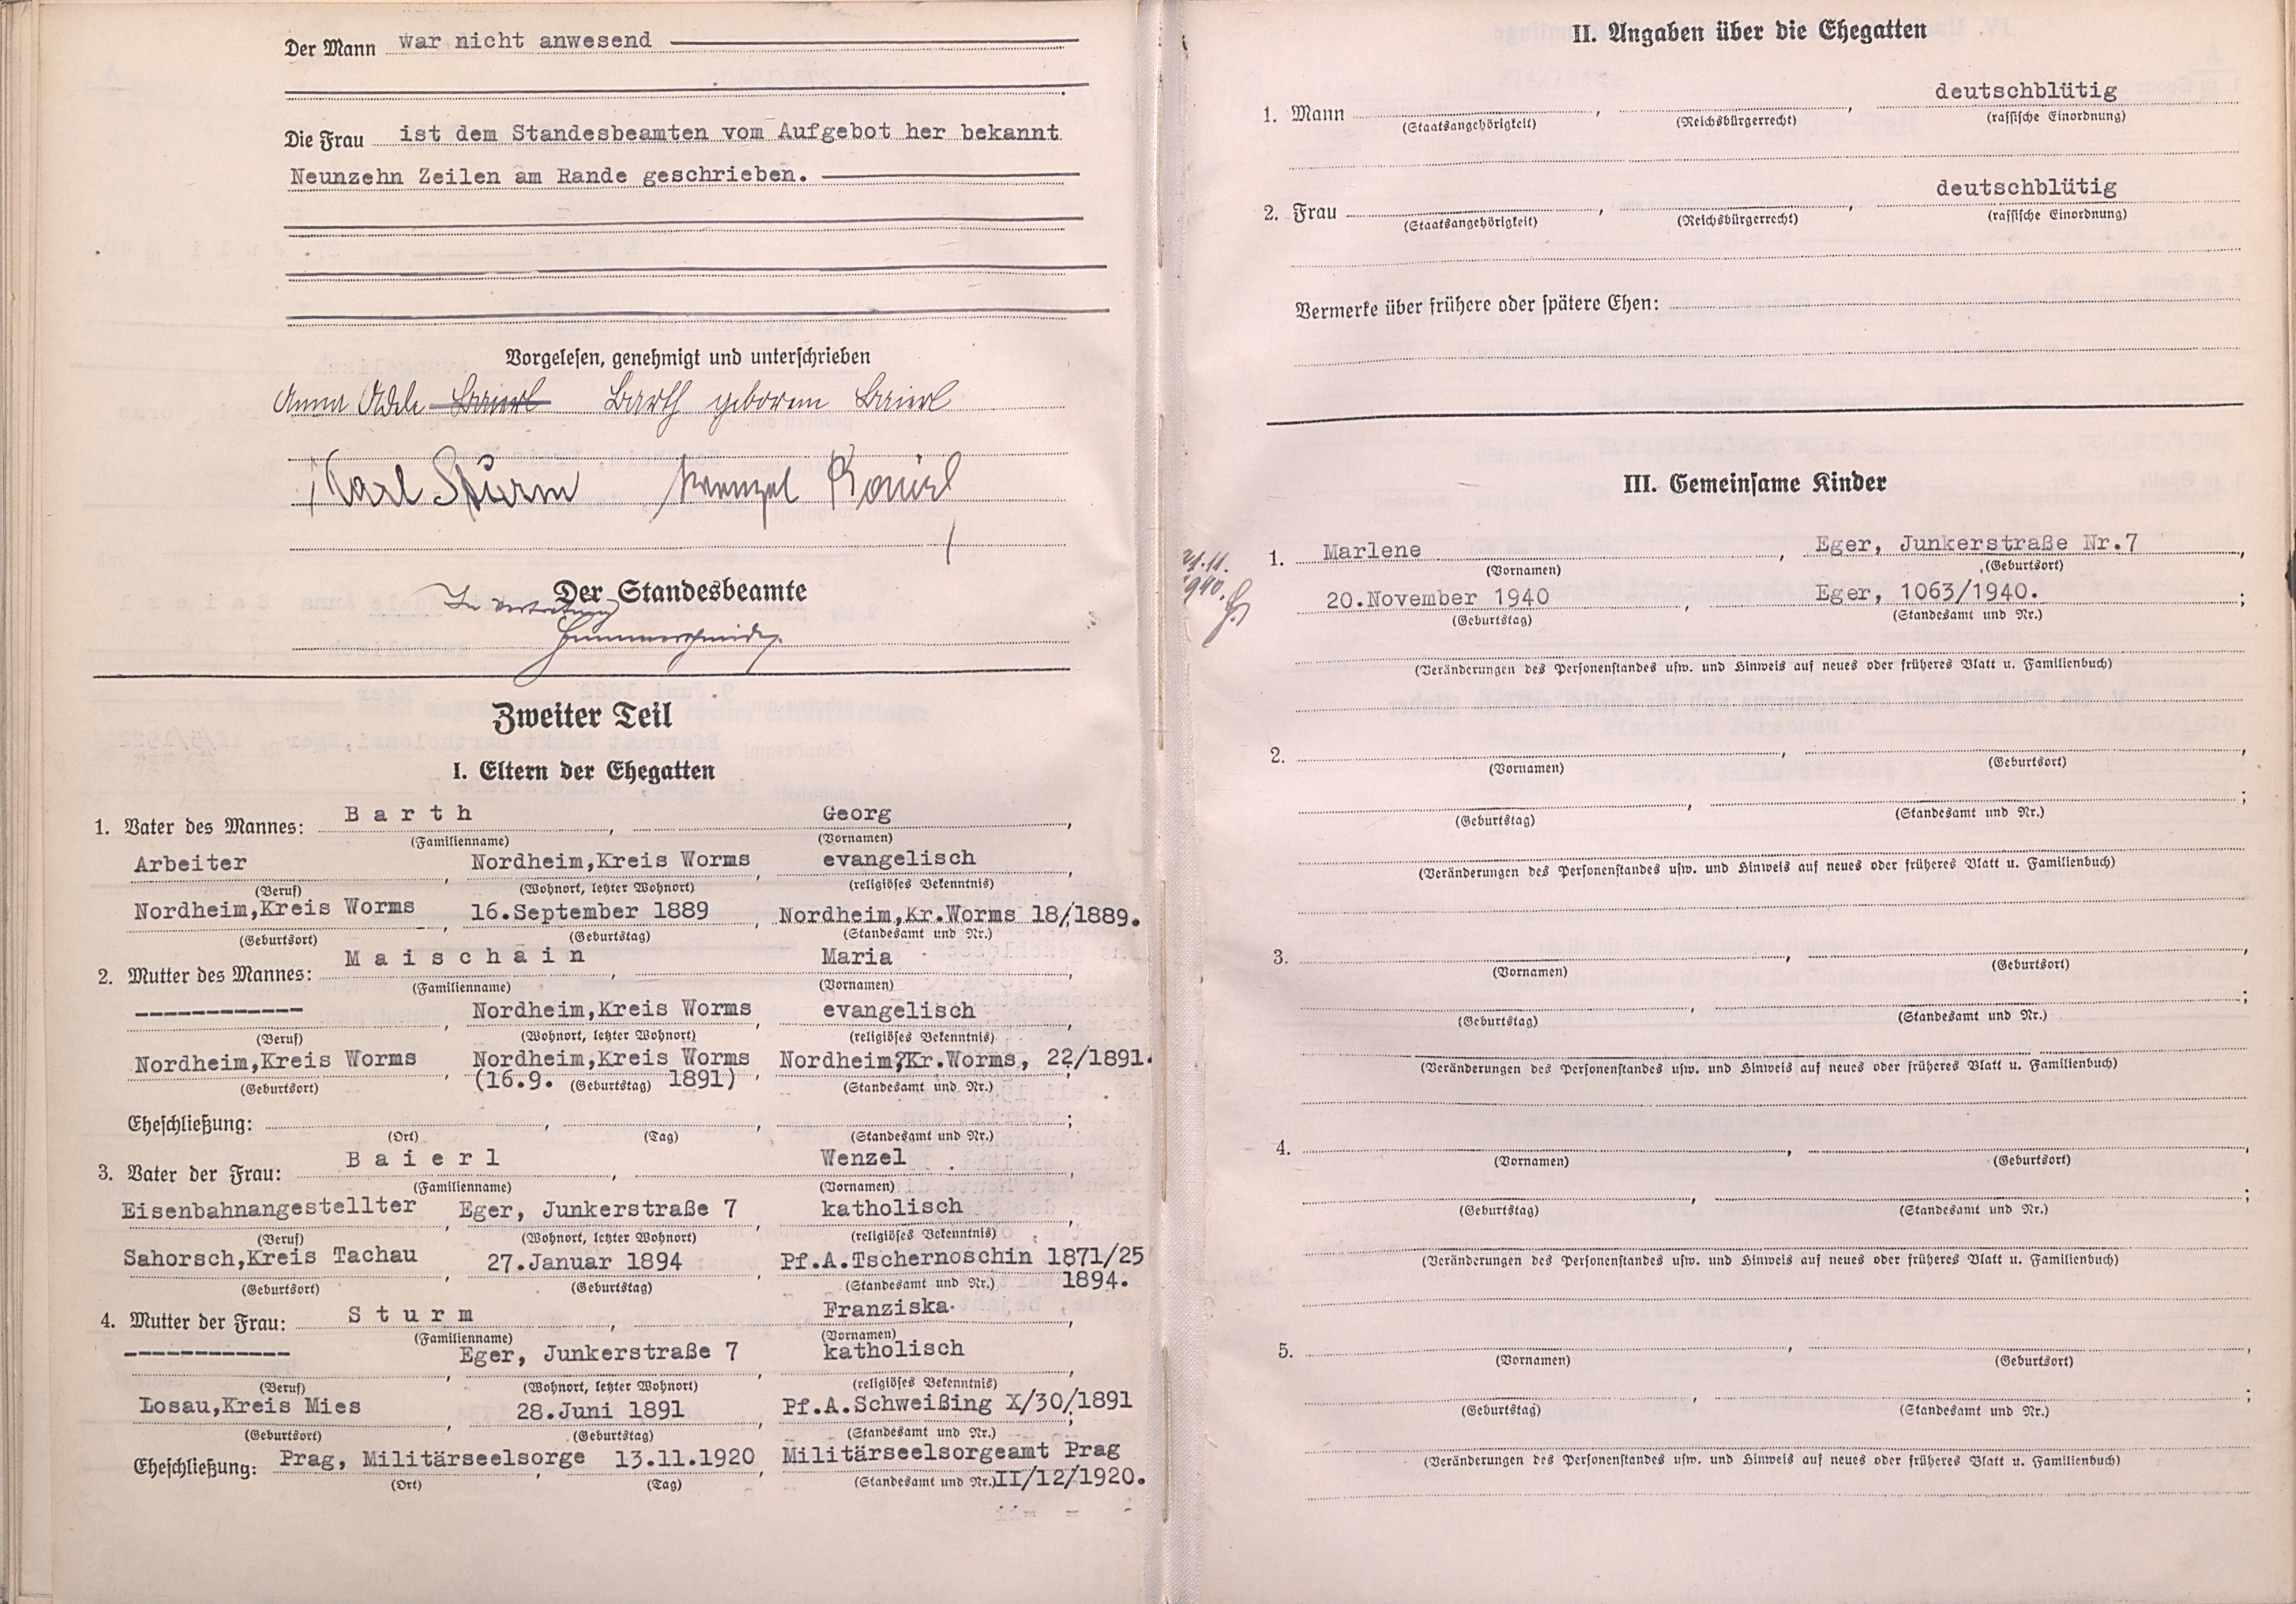 Der Mann war nicht anwesend
Die Frau ist dem Standesbeamten vom Aufgebot her bekannt
Neunzehn Zeilen am Rande geschrieben.
Vorgelesen, genehmigt und unterschrieben
Anna Adele Baierl Barth geborene Baierl
Karl Sturm Wenzel Baierl
Der Standesbeamte
In Vertretung
Zweiter Teil
I. Eltern der Ehegatten
1. Vater des Mannes: Barth, Georg,
(Familienname) (Vornamen)
Arbeiter, Nordheim,Kreis Worms, evangelisch,
(Beruf) (Wohnort, letzter Wohnort) (religiöses Bekenntnis)
Nordheim,Kreis Worms, 16.September 1889, Nordheim,Kr.Worms 18/1889.
(Geburtsort) (Geburtstag) (Standesamt und Nr.)
2. Mutter des Mannes: Maischain, Maria,
(Familienname) (Vornamen)
------------, Nordheim,Kreis Worms, evangelisch,
(Beruf) (Wohnort, letzter Wohnort) (religiöses Bekenntnis)
Nordheim,Kreis Worms, Nordheim,Kreis Worms, Nordheim,Kr.Worms, 22/1891.
(Geburtsort) (16.9. (Geburtstag) 1891) (Standesamt und Nr.)
Eheschließung: , , ;
(Ort) (Tag) (Standesamt und Nr.)
3. Vater der Frau: Baierl, Wenzel,
(Familienname) (Vornamen)
Eisenbahnangestellter, Eger, Junkerstraße 7, katholisch,
(Beruf) (Wohnort, letzter Wohnort) (religiöses Bekenntnis)
Sahorsch,Kreis Tachau, 27.Januar 1894, Pf.A.Tschernoschin 1871/25
(Geburtsort) (Geburtstag) (Standesamt und Nr.) 1894.
4. Mutter der Frau: Sturm, Franziska,
(Familienname) (Vornamen)
------------, Eger, Junkerstraße 7, katholisch,
(Beruf) (Wohnort, letzter Wohnort) (religiöses Bekenntnis)
Losau,Kreis Mies, 28.Juni 1891, Pf.A.Schweißing X/30/1891;
(Geburtsort) (Geburtstag) (Standesamt und Nr.)
Eheschließung: Prag, Militärseelsorge, 13.11.1920, Militärseelsorgeamt Prag
(Ort) (Tag) (Standesamt und Nr.) II/12/1920.
II. Angaben über die Ehegatten
1. Mann , , deutschblütig
(Staatsangehörigkeit) (Reichsbürgerrecht) (rassische Einordnung)
2. Frau , , deutschblütig
(Staatsangehörigkeit) (Reichsbürgerrecht) (rassische Einordnung)
Vermerke über frühere oder spätere Ehen:
III. Gemeinsame Kinder
21.11.
1940.
1. Marlene, Eger, Junkerstraße Nr.7,
(Vornamen) (Geburtsort)
20.November 1940, Eger, 1063/1940.;
(Geburtstag) (Standesamt und Nr.)
(Veränderungen des Personenstandes usw. und Hinweis auf neues oder früheres Blatt u. Familienbuch)
2. , ,
(Vornamen) (Geburtsort)
, ;
(Geburtstag) (Standesamt und Nr.)
(Veränderungen des Personenstandes usw. und Hinweis auf neues oder früheres Blatt u. Familienbuch)
3. , ,
(Vornamen) (Geburtsort)
, ;
(Geburtstag) (Standesamt und Nr.)
(Veränderungen des Personenstandes usw. und Hinweis auf neues oder früheres Blatt u. Familienbuch)
4. , ,
(Vornamen) (Geburtsort)
, ;
(Geburtstag) (Standesamt und Nr.)
(Veränderungen des Personenstandes usw. und Hinweis auf neues oder früheres Blatt u. Familienbuch)
5. , ,
(Vornamen) (Geburtsort)
, ;
(Geburtstag) (Standesamt und Nr.)
(Veränderungen des Personenstandes usw. und Hinweis auf neues oder früheres Blatt u. Familienbuch)